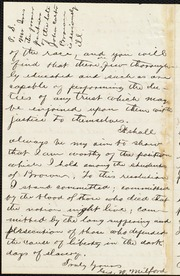 of the race and you will
find that there few thorough-
ly educated and such as are
capable of performing the du-
ties of any trust which may
be imposed upon them with
justice to themselves.
I shall
always be my aim to show
that I am worthy of the position
which I hold among the
of Brown. To this resolution
I stand committed; committed
by the blood of those who died that
the nation might live; com-
mitted by the long suffering and
persecution of those who defended
the cause of liberty in the dark
days of slavery.
Truly Yours
Geo. W. Milford